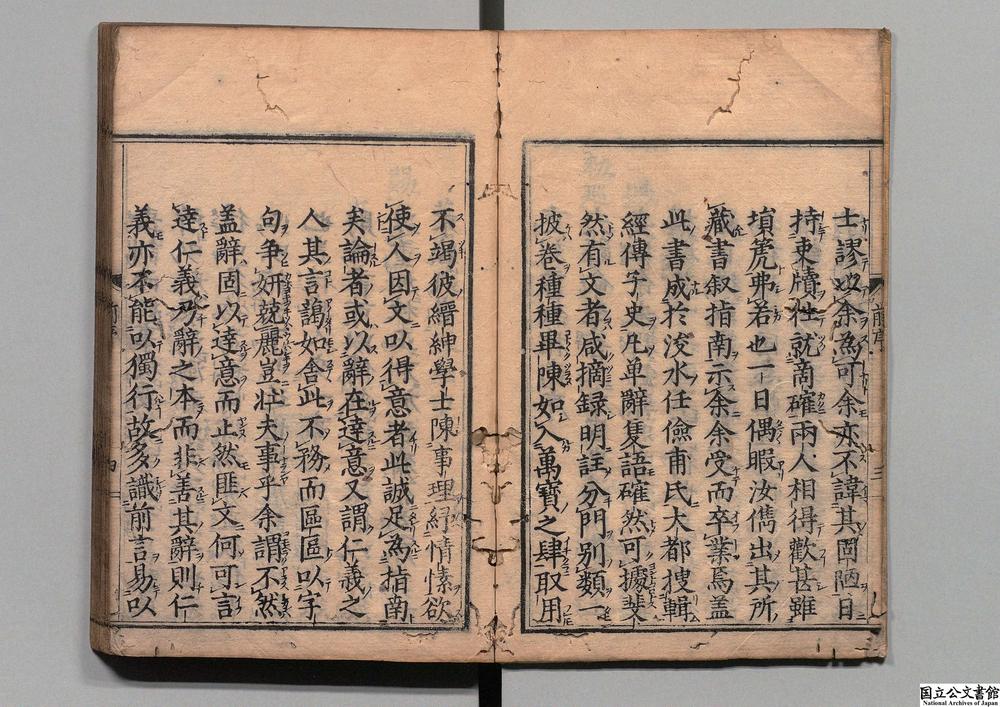 士謬以余為可余亦不諱其固陋日
持束牘往就商確兩人相得歡甚雖
塤箎弗若也一日偶暇汝儁出其所
藏書叙指南示余余受而卒業焉盖
此書成於浚水任儉甫氏大都搜輯
經傳子史凡単辭隻語確然可據斐
然有文者咸摘録明註分門别類一
披卷種種畢陳如入萬寶之肆取用
不竭彼縉紳學士陳事理紓情愫欲
使人因文以得意者此誠足為指南
矣論者或以辭在達意又謂仁義之
人其言藹如舍此不務而區區以字
句争妍競麗豈壮夫事乎余謂不然
盖辭固以達意而止然匪文何可言
達仁義乃辭之本而非善其辭則仁
義亦不能以獨行故多識前言易以
前序
三
四
国立公文書館
National Archives of Japan